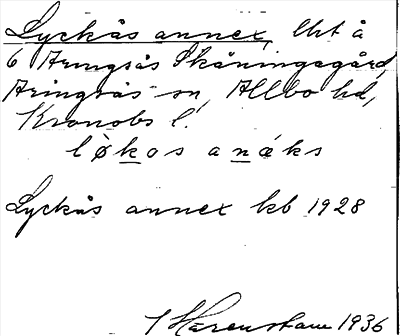 Lyckås annex, lht å
6 Aringsås Skåningagård,
Aringsås sn, Allbo hd,
Kronobs l.
løkos anæks
Lyckås annex kb 1928
J Harenstam 1936